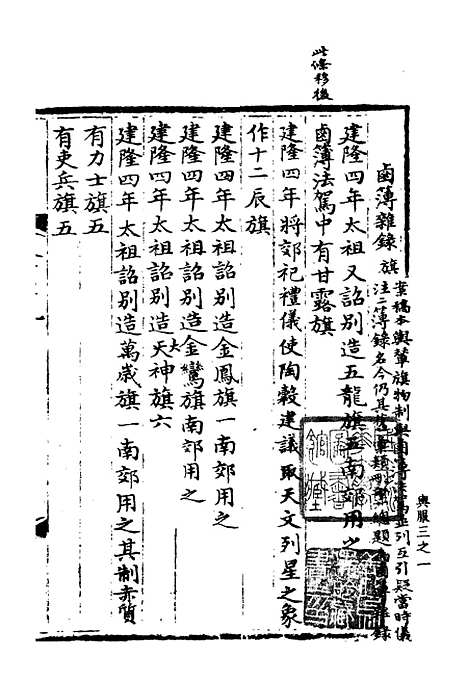 此條移後
輿服三之一
鹵簿雜錄 旗
案稿本輿輦旗物制與鹵簿
並列互引疑當時儀
注二簿錄名今仍其舊
題
錄
建隆四年太祖又詔別造五龍旗五南郊用之
鹵簿法駕中有甘露旗
建隆四年將郊祀禮儀使陶穀建議取天文列星之象
作十二辰旗
建隆四年太祖詔別造金鳳旗一南郊用之
建隆四年太祖詔別造金鸞旗南郊用之
建隆四年太祖詔別造天大神旗六
建隆四年太祖詔別造萬歲旗一南郊用之其制赤質
有力士旗五
有吏兵旗五